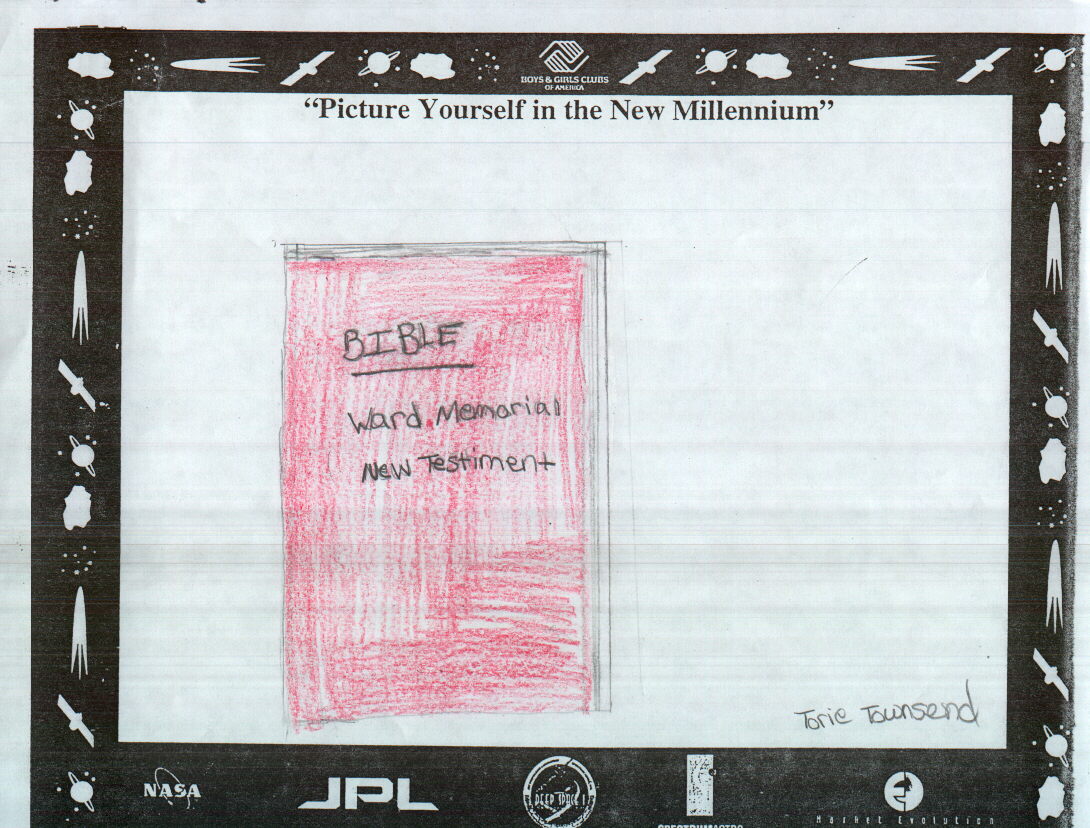 BOYS & GIRLS CLUBS
OF AMERICA
“Picture Yourself in the New Millennium”
BIBLE
Ward Memorial
New Testiment
Torie Townsend
NASA
JPL
DEEP SPACE 1
SPECTRUMASTRO
Market Evolution